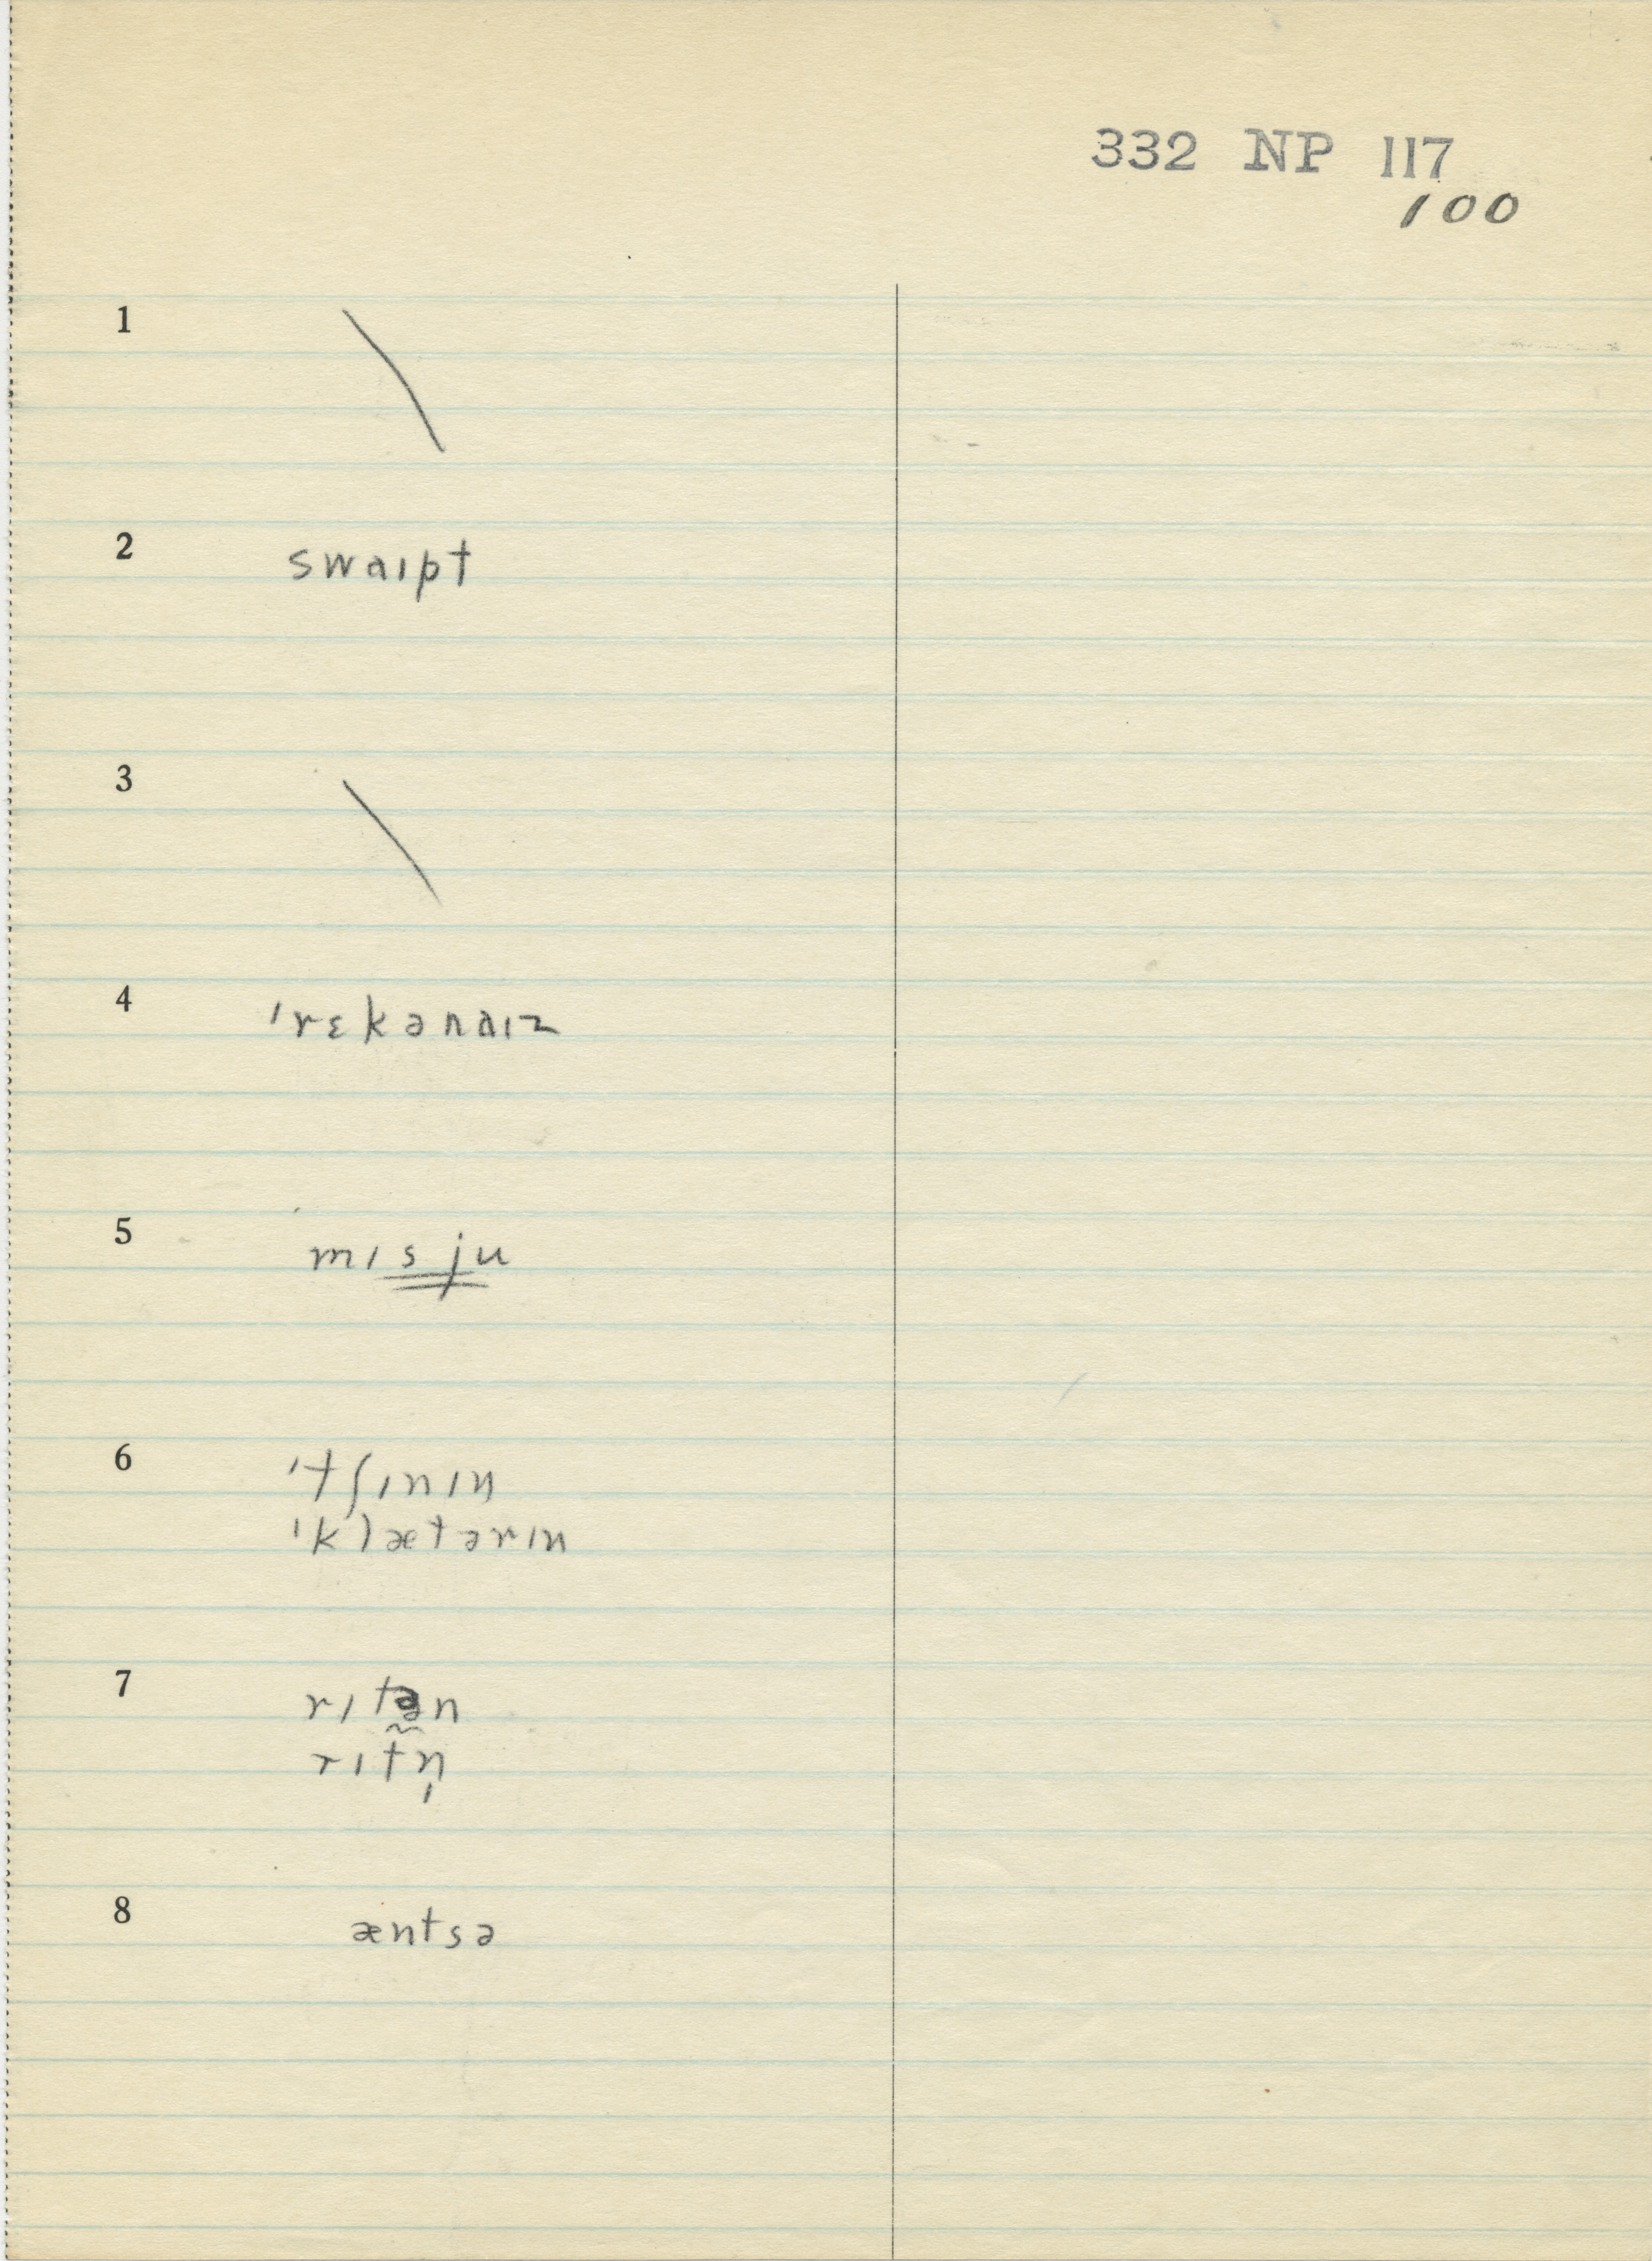 332 NP 117
100
1 \
2 swaɪpt
3 \
4 ˈrɛkənaɪz
5 mɪsju
6 ˈtʃɪnɪŋ
ˈklætərɪn
7 rɪtə̰n
rɪtn̩
8 æntsə